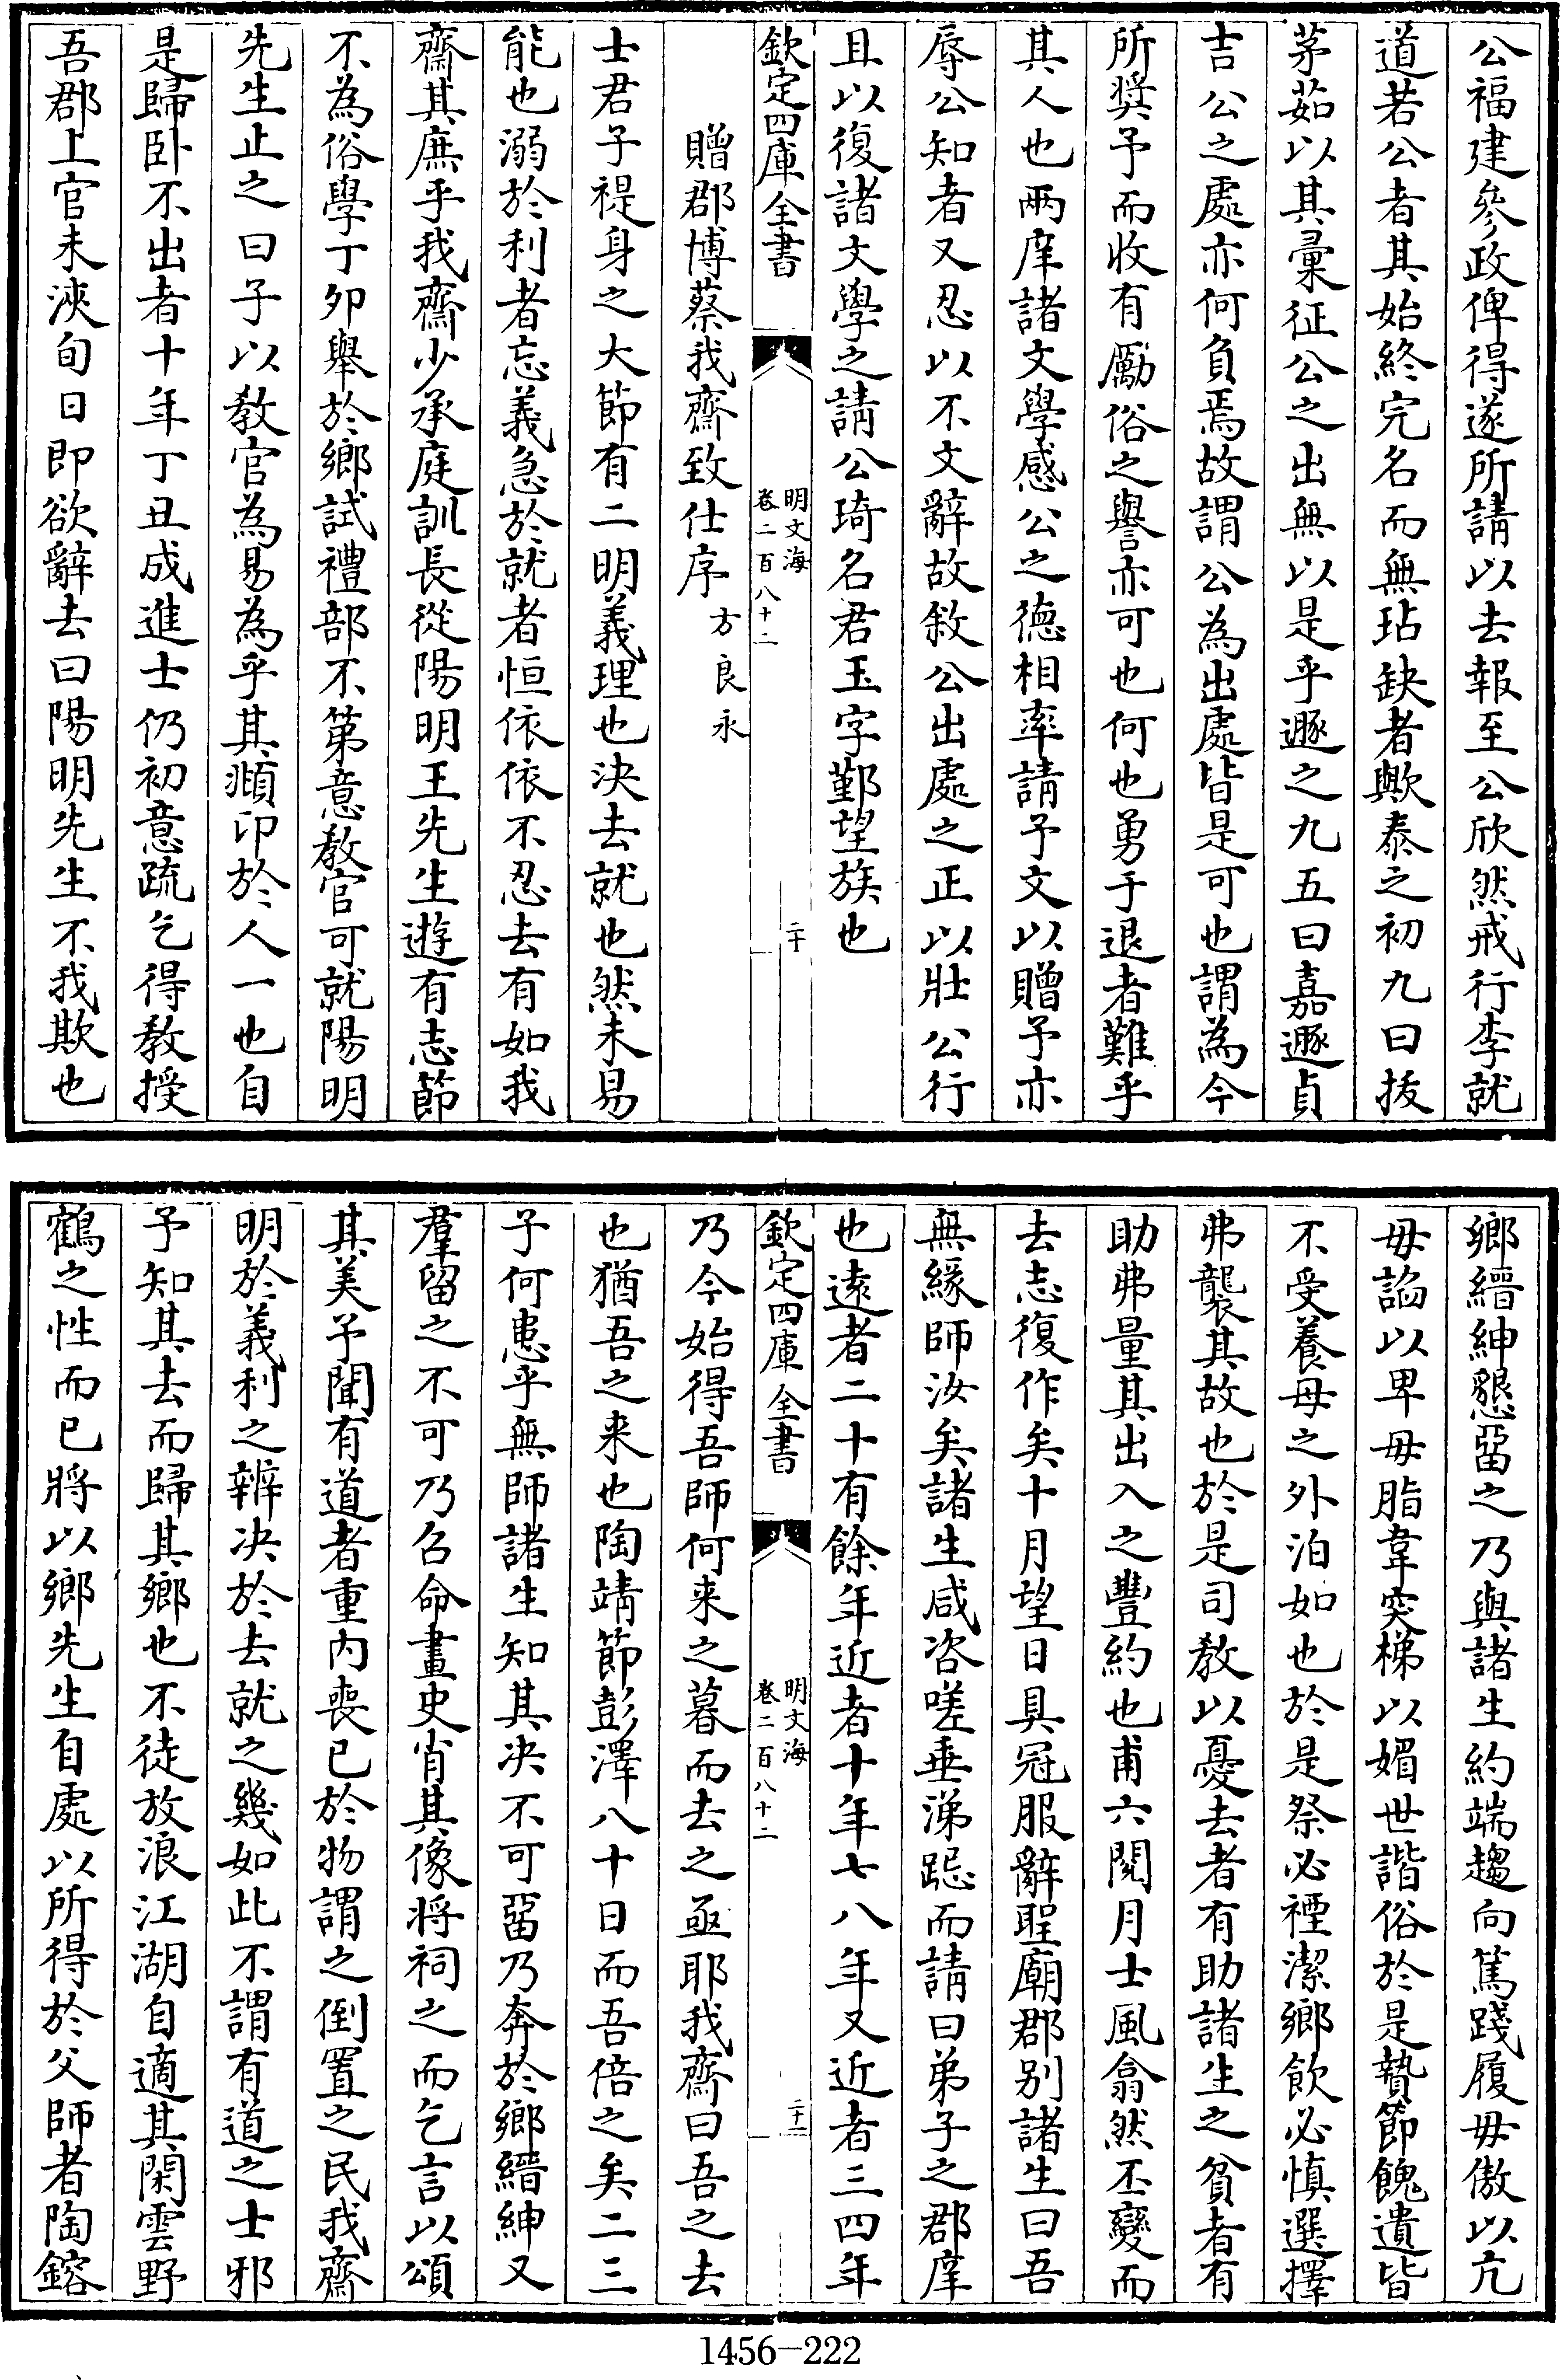 公福建參政俾得遂所請以去報至公欣然戒行李就
道若公者其始終完名而無玷缺者歟泰之初九曰拔
茅茹以其彙征公之出無以是乎遯之九五曰嘉遯貞
吉公之處亦何負焉故謂公為出處皆是可也謂為今
所奨予而收有勵俗之譽亦可也何也勇于退者難乎
其人也兩庠諸文學感公之德相率請予文以贈予亦
辱公知者又忍以不文辭故敘公出處之正以壯公行
且以復諸文學之請公琦名君玉字鄞望族也
欽定四庫全書
明文海
卷二百八十二
二十
贈郡博蔡我齋致仕序 方良永
士君子禔身之大節有二明義理也決去就也然未易
能也溺於利者忘義急於就者恒依依不忍去有如我
齋其庶乎我齋少承庭訓長從陽明王先生遊有志節
不為俗學丁夘舉於鄉試禮部不第意教官可就陽明
先生止之曰子以教官為易為乎其頫印於人一也自
是歸卧不出者十年丁丑成進士仍初意疏乞得教授
吾郡上官未浹旬日即欲辭去曰陽明先生不我欺也
鄉縉紳懇留之乃與諸生約端趨向篤踐履毋傲以亢
毋諂以卑毋脂韋突梯以媚世諧俗於是贄節餽遺皆
不受養母之外泊如也於是祭必禋潔鄉飲必慎選擇
弗襲其故也於是司教以憂去者有助諸生之貧者有
助弗量其出入之豐約也甫六閱月士風翕然丕變而
去志復作矣十月望日具冠服辭聖廟郡别諸生曰吾
無緣師汝矣諸生咸咨嗟垂涕跽而請曰弟子之郡庠
也遠者二十有餘年近者十年七八年又近者三四年
欽定四庫全書
明文海
卷二百八十二
二十一
乃今始得吾師何来之暮而去之亟耶我齋曰吾之去
也猶吾之来也陶靖節彭澤八十日而吾倍之矣二三
子何患乎無師諸生知其決不可留乃奔於鄉縉紳又
羣留之不可乃召命畫史肖其像將祠之而乞言以頌
其美予聞有道者重内喪已於物謂之倒置之民我齋
明於義利之辨决於去就之幾如此不謂有道之士邪
予知其去而歸其鄉也不徒放浪江湖自適其閑雲野
鶴之性而已將以鄉先生自處以所得於父師者陶鎔
1456-222